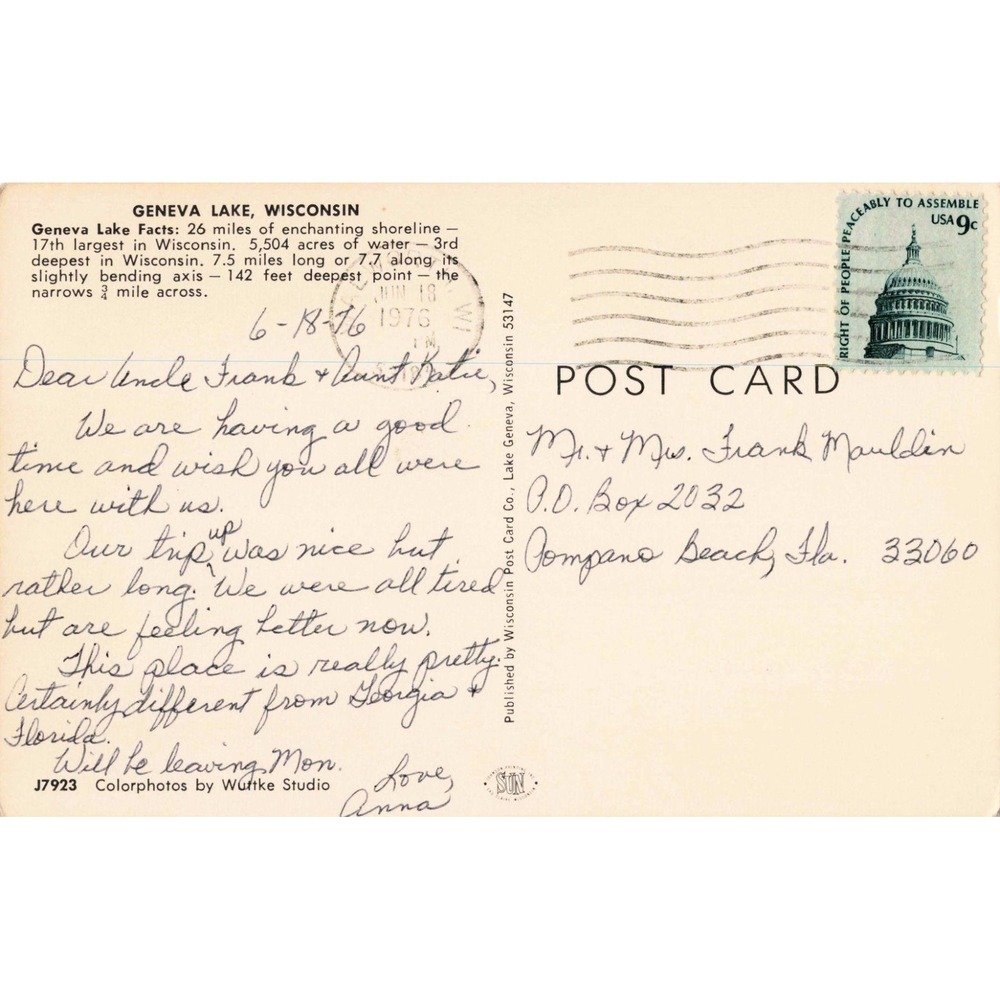 GENEVA LAKE, WISCONSIN
Geneva Lake Facts: 26 miles of enchanting shoreline —
17th largest in Wisconsin. 5,504 acres of water — 3rd
deepest in Wisconsin. 7.5 miles long or 7.7 along its
slightly bending axis — 142 feet deepest point — the
narrows ¾ mile across.
6-18-76
Dear Uncle Frank + Aunt Katie,
We are having a good
time and wish you all were
here with us.
Our trip up was nice but
rather long. We were all tired
but are feeling better now.
This place is really pretty.
Certainly different from Georgia +
Florida.
Will be leaving Mon.
Love,
Anna
J7923 Colorphotos by Wuttke Studio
JUN 18
1976
PM
WI
Published by Wisconsin Post Card Co., Lake Geneva, Wisconsin 53147
SUN
RIGHT OF PEOPLE PEACEABLY TO ASSEMBLE
USA 9c
POST CARD
Mr. + Mrs. Frank Mauldin
P.O. Box 2032
Pompano Beach, Fla. 33060